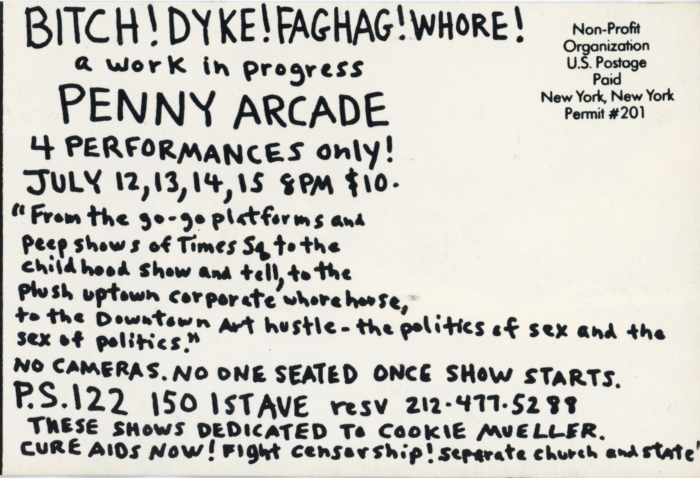 BITCH! DYKE! FAGHAG! WHORE!
a work in progress
PENNY ARCADE
4 PERFORMANCES only!
JULY 12, 13, 14, 15 8PM $10.
"From the go-go platforms and
peep shows of Times Sq to the
childhood show and tell, to the
plush uptown corporate whorehouse,
to the Downtown Art hustle - the politics of sex and the
sex of politics."
NO CAMERAS. NO ONE SEATED ONCE SHOW STARTS.
P.S.122 150 1ST AVE resv 212-477-5288
THESE SHOWS DEDICATED TO COOKIE MUELLER.
CURE AIDS NOW! Fight censorship! separate church and state'
Non-Profit
Organization
U.S. Postage
Paid
New York, New York
Permit #201